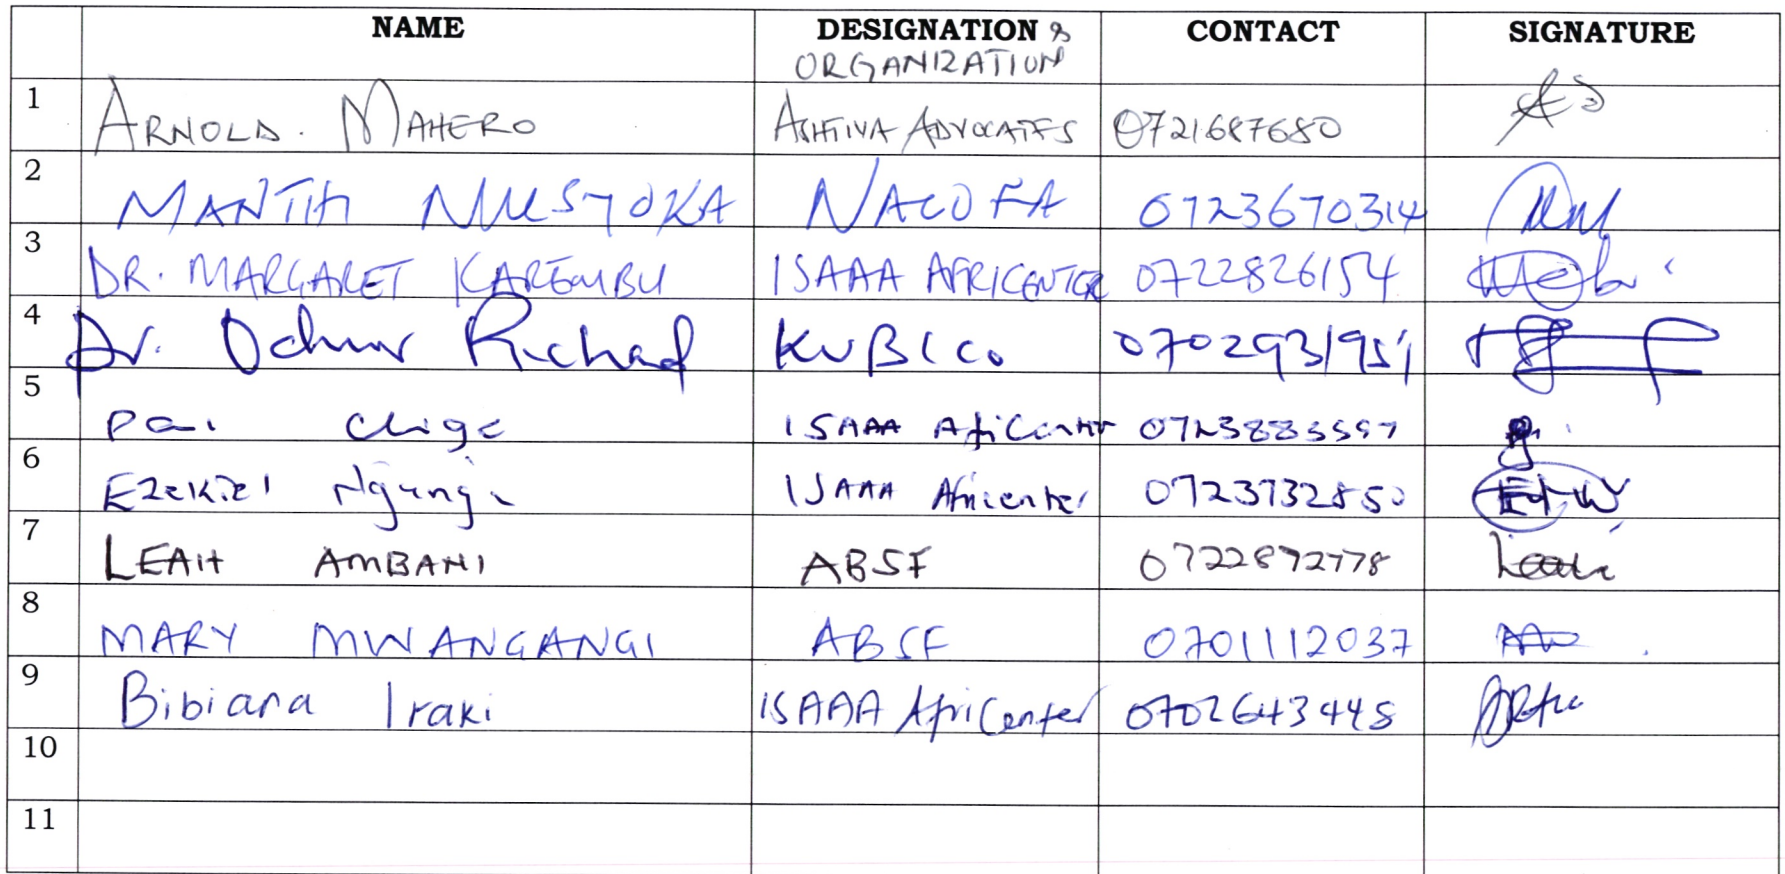 NAME DESIGNATION & CONTACT SIGNATURE
ORGANIZATION
1 ARNOLD. MAHERO ASHTIVA ADVOCATES 0721687680
2 MANTHI MUSYOKA NACOFA 0723670314
3 DR. MARGARET KAREMBU ISAAA AFRICENTER 0722826154
4 Dr. Oduor Richard KUBICO 0702931951
5 ISAAA AfriCenter
6 Ezekiel ISAAA Africenter 0723732850
7 LEAH AMBANI ABSF 0722872778
8 MARY MWANGANGI ABSF 0701112037
9 Bibiana Iraki ISAAA AfriCenter 0702643448
10
11